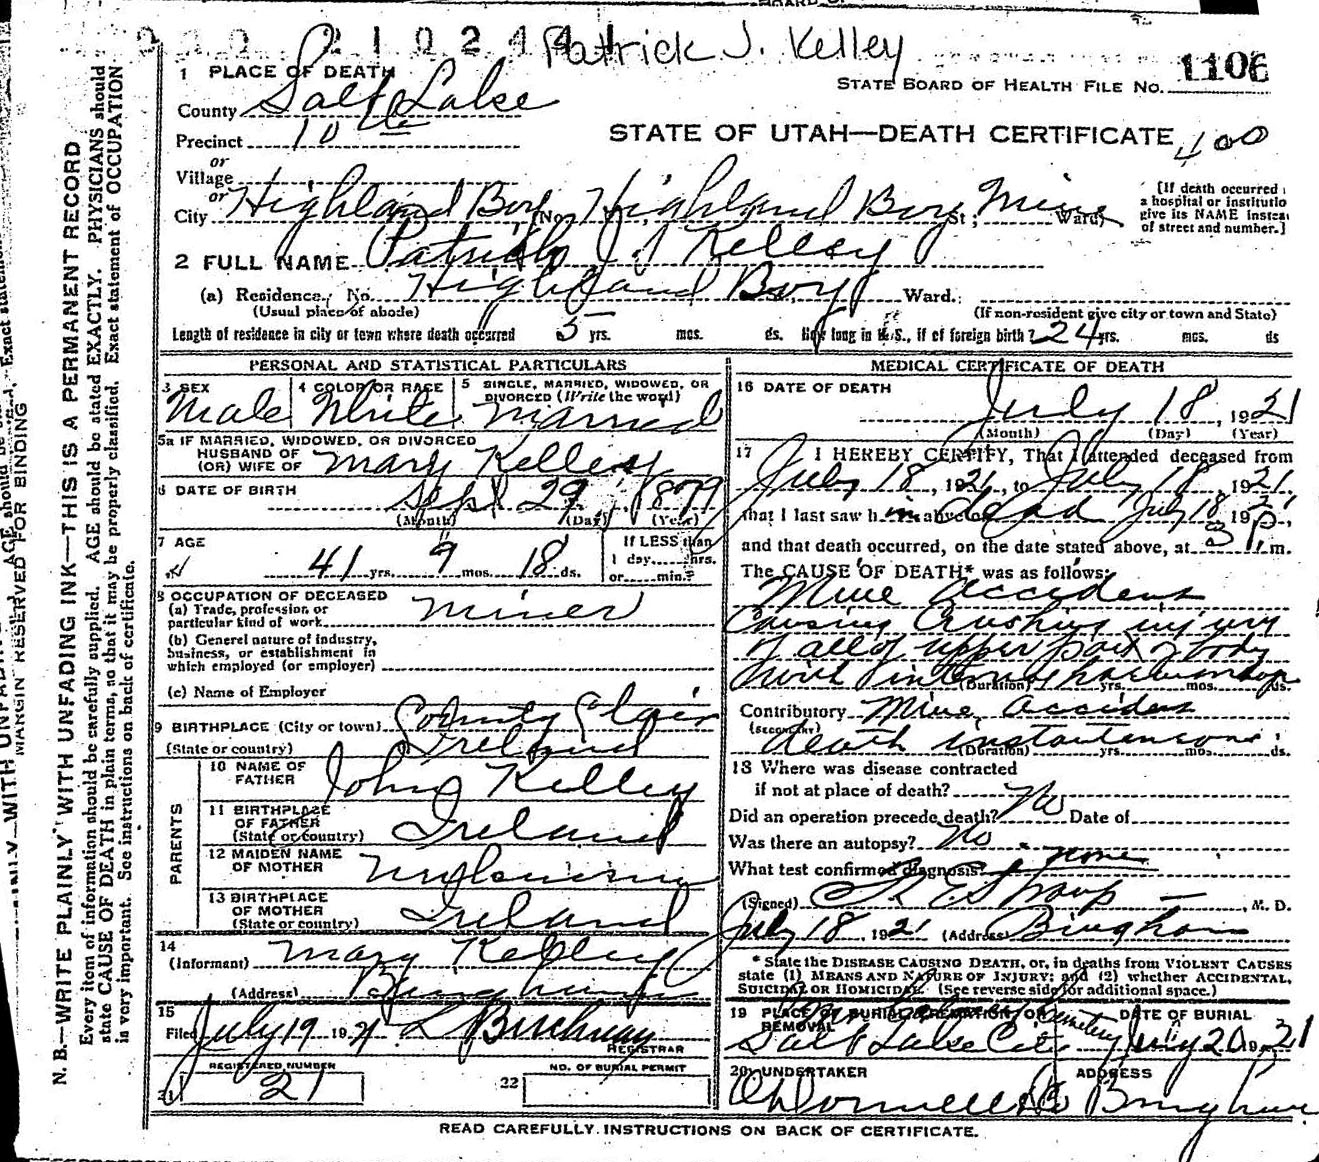 210244
Patrick J. Kelley
1106
STATE BOARD OF HEALTH FILE No.
1 PLACE OF DEATH
County Salt Lake
Precinct 10
STATE OF UTAH—DEATH CERTIFICATE
400
or
Village
or
City Highland Boy (No. Highland Boy St; Mine Ward)
[If death occurred
a hospital or institutio
give its NAME instea
of street and number.]
2 FULL NAME Patrick J. Kelley
(a) Residence, No. Highland Boy Ward.
(Usual place of abode) (If non-resident give city or town and State)
Length of residence in city or town where death occurred 5 yrs. mos. ds. How long in U.S., if of foreign birth? 24 yrs. mos. ds
PERSONAL AND STATISTICAL PARTICULARS
3 SEX Male
4 COLOR OR RACE White
5 SINGLE, MARRIED, WIDOWED, OR
DIVORCED (Write the word)
Married
5a IF MARRIED, WIDOWED, OR DIVORCED
HUSBAND OF
(OR) WIFE OF Mary Kelley
6 DATE OF BIRTH Sept 29 1879
(Month) (Day) (Year)
7 AGE 41 yrs. 9 mos. 18 ds.
If LESS than
1 day, hrs.
or min.?
8 OCCUPATION OF DECEASED
(a) Trade, profession or
particular kind of work miner
(b) General nature of industry,
business, or establishment in
which employed (or employer)
(c) Name of Employer
9 BIRTHPLACE (City or town) County Clair
(State or country) Ireland
PARENTS
10 NAME OF
FATHER John Kelley
11 BIRTHPLACE
OF FATHER
(State or country) Ireland
12 MAIDEN NAME
OF MOTHER
13 BIRTHPLACE
OF MOTHER
(State or country) Ireland
14
(Informant) Mary Kelley
(Address) Bingham
15
Filed July 19 1921
REGISTRAR
REGISTERED NUMBER
21 21
NO. OF BURIAL PERMIT
22
MEDICAL CERTIFICATE OF DEATH
16 DATE OF DEATH
July 18, 1921
(Month) (Day) (Year)
17 I HEREBY CERTIFY, That I attended deceased from
July 18, 1921, to July 18, 1921
that I last saw him alive on dead July 18 1921,
and that death occurred, on the date stated above, at 3 P.m.
The CAUSE OF DEATH* was as follows:
Mine accident
causing crushing injury
of all of upper part of body
with internal
(Duration) yrs. mos. ds.
Contributory Mine accident
(SECONDARY)
death
(Duration) yrs. mos. ds.
18 Where was disease contracted
if not at place of death? No
Did an operation precede death? Date of
Was there an autopsy? No
What test confirmed diagnosis? none
(Signed) , M. D.
July 18, 1921 (Address) Bingham
* State the DISEASE CAUSING DEATH, or, in deaths from VIOLENT CAUSES
state (1) MEANS AND NATURE OF INJURY; and (2) whether ACCIDENTAL,
SUICIDAL OR HOMICIDAL. (See reverse side for additional space.)
19 PLACE OF BURIAL, CREMATION, OR
REMOVAL
Cemetery
Salt Lake City
DATE OF BURIAL
July 20 1921
20 UNDERTAKER
O'Donnell & Co
ADDRESS
Bingham
READ CAREFULLY INSTRUCTIONS ON BACK OF CERTIFICATE.
MARGIN RESERVED FOR BINDING
N. B.—WRITE PLAINLY WITH UNFADING INK—THIS IS A PERMANENT RECORD
Every item of information should be carefully supplied. AGE should be stated EXACTLY. PHYSICIANS should
state CAUSE OF DEATH in plain terms, so that it may be properly classified. Exact statement of OCCUPATION
is very important. See instructions on back of certificate.